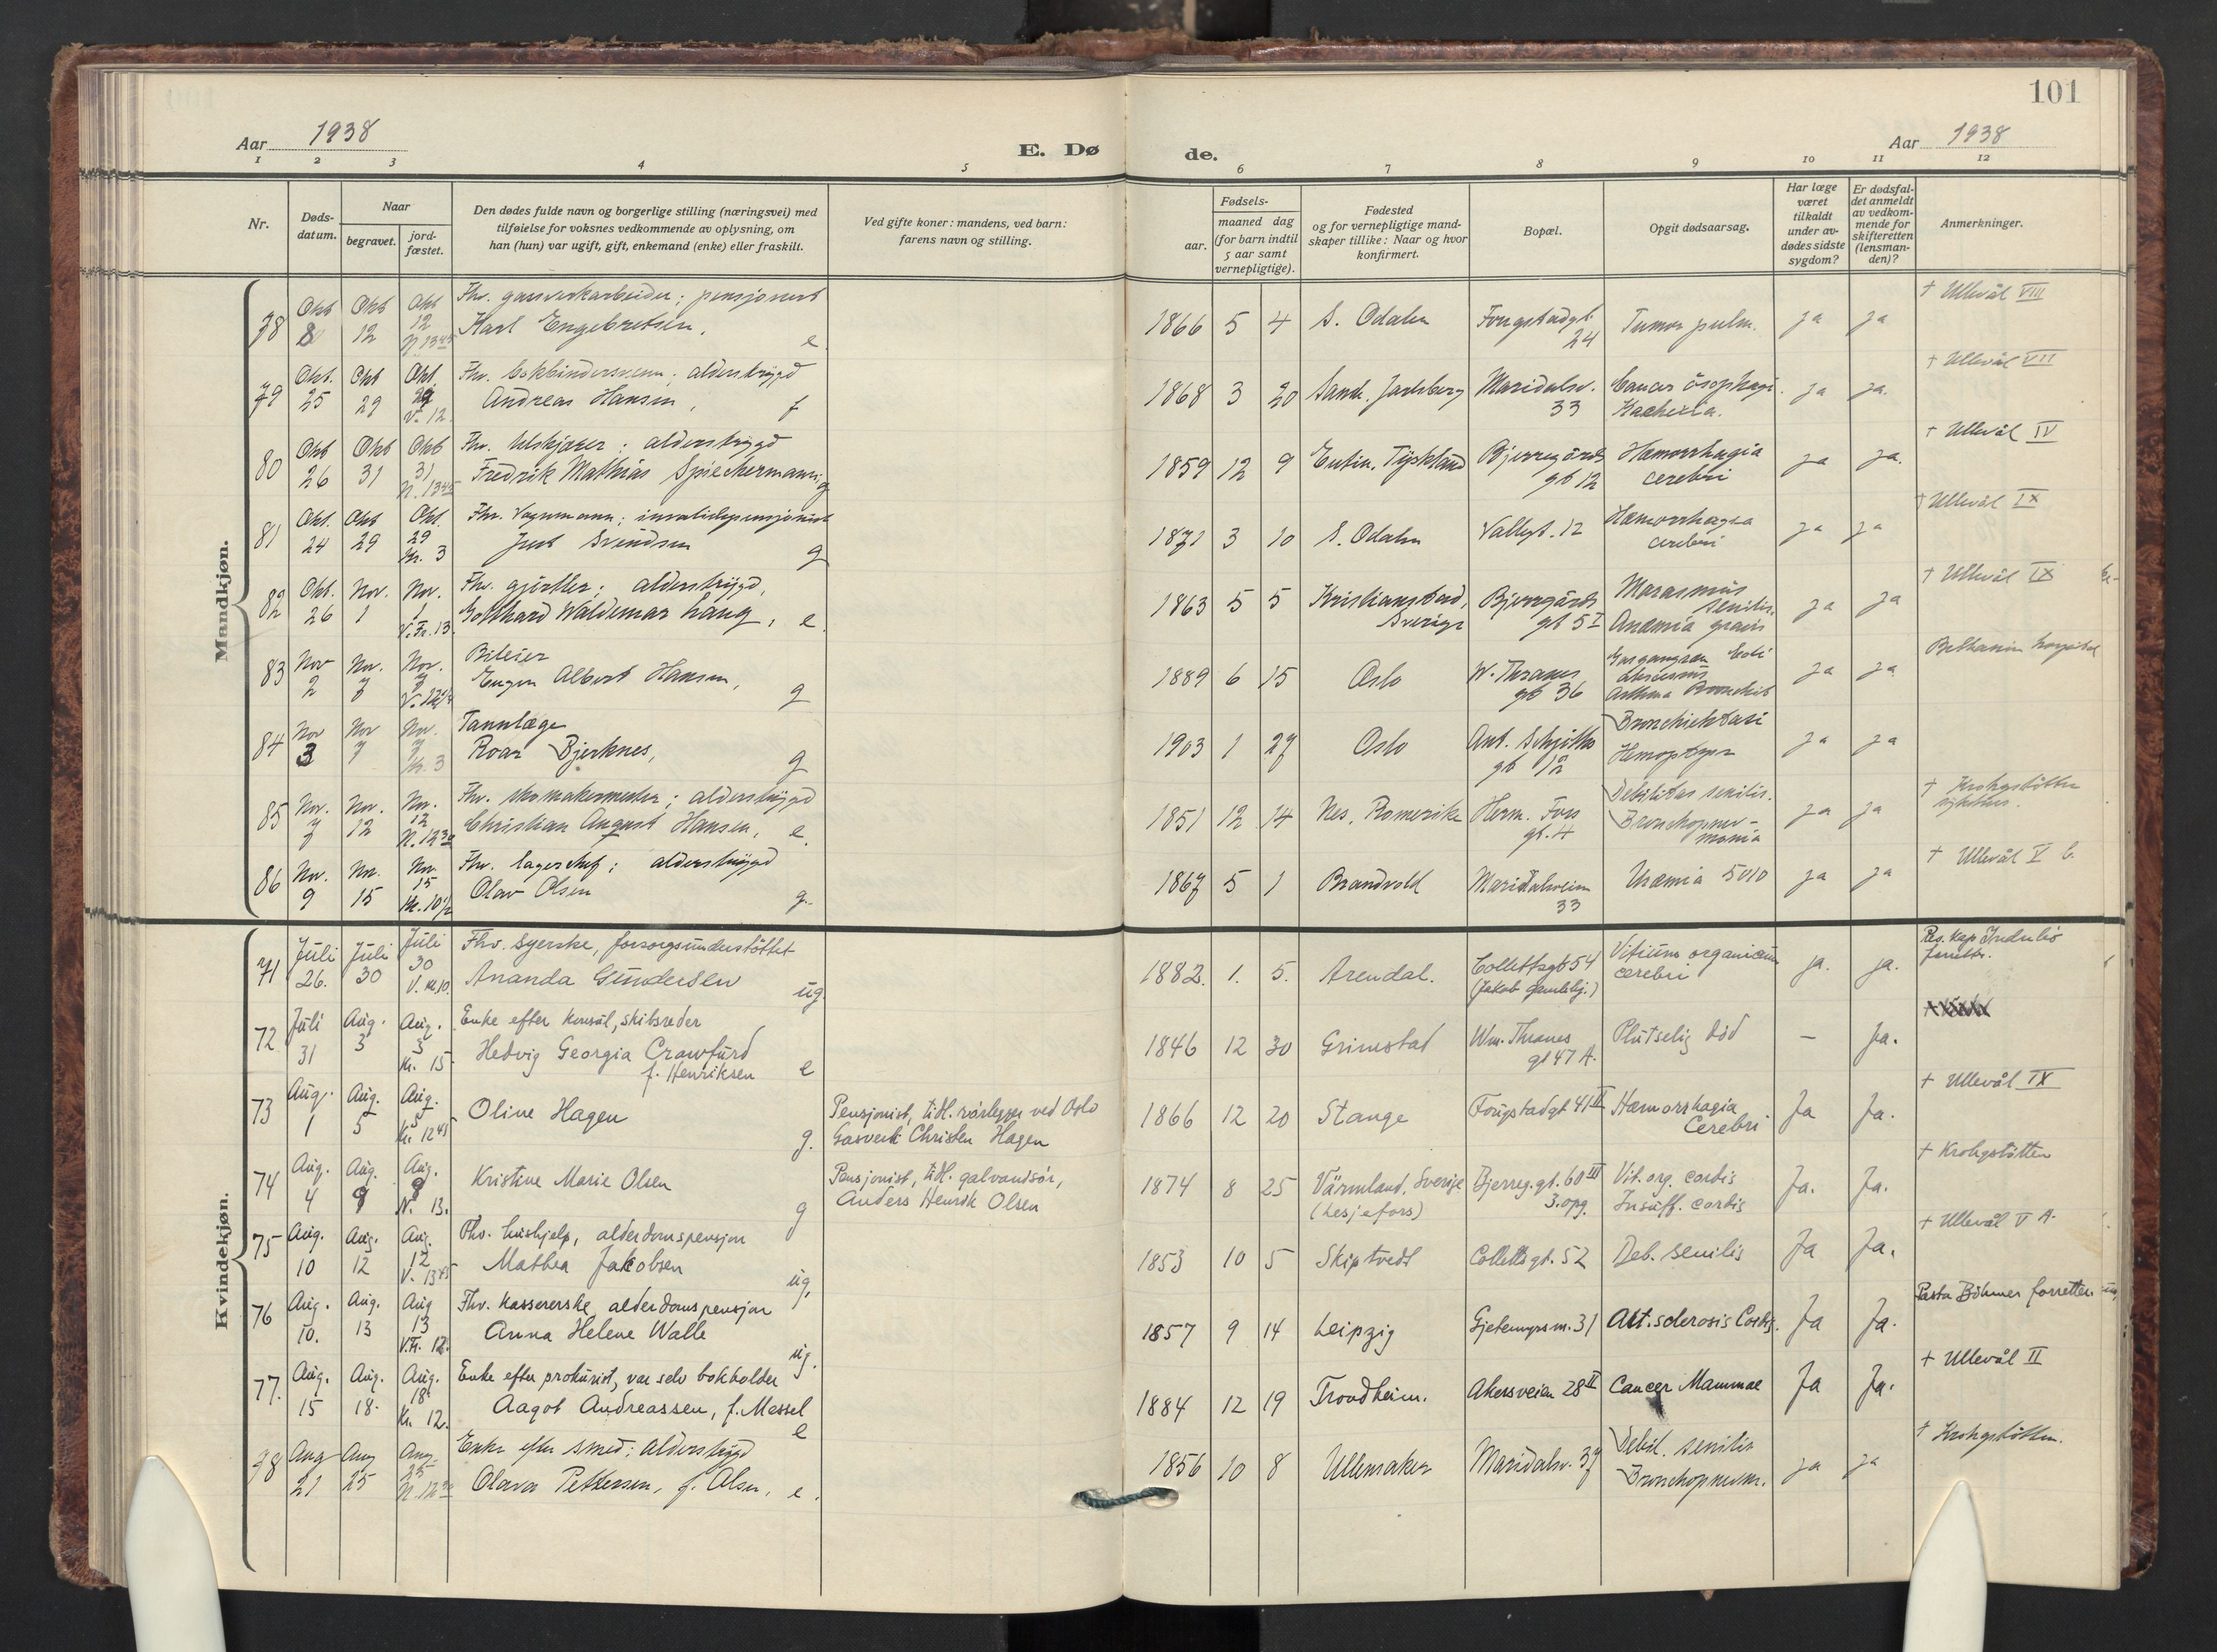 101
Aar 1938
E. Dø de.
Aar 1938
1 2 3 4 5 6 7 8 9 10 11 12
Nr.
Døds-datum.
Naar
begravet.
jord-fæstet.
Den dødes fulde navn og borgerlige stilling (næringsvei) med
tilføielse for voksnes vedkommende av oplysning, om
han (hun) var ugift, gift, enkemand (enke) eller fraskilt.
Ved gifte koner: mandens, ved barn:
farens navn og stilling.
Fødsels-
aar.
maaned dag
(for barn indtil
5 aar samt
vernepligtige).
Fødested
og for vernepligtige mand-
skaper tillike: Naar og hvor
konfirmert.
Bopæl.
Opgit dødsaarsag.
Har læge
været
tilkaldt
under av-
dødes sidste
sygdom?
Er dødsfal-
det anmeldt
av vedkom-
mende for
skifteretten
(lensman-
den)?
Anmerkninger.
Mandkjøn.
78 Okt 8 Okt 12 Okt 12 Fhv. gassverkarbeider; pensjonert
Karl Engebretsen, e. 1866 5 4 S. Odalen Fougstadgt. 24 Tumor pulm. ja ja † Ullevål VIII
79 Okt. 25 Okt 29 Okt. 29 V. 12. Fhv. bokbindersvenn; alderstrygd
Andreas Hansen, f 1868 3 20 Sand. Jarlsberg Maridalsv. 33 Cancer ösophagi. Kachexia. ja ja. † Ullevål VII
80 Okt 26 Okt 31 Okt 31 N. 13 45 Fhv. alderstrygd
Fredrik Mathias Spieckermann, g 1859 12 9 Eutin, Tyskland Bjerregårds gt 12 Hæmorrhagia cerebri ja ja. † Ullevål IV
81 Okt. 24 Okt 29 Okt. 29 Kr. 3 Fhv. Vognmann; invalidepensjonist
Just Svendsen g 1871 3 10 S. Odalen Vallegt. 12 Hæmorrhagia cerebri ja ja † Ullevål IX
82 Okt. 26 Nov. 1 Nov. 1 V. Fr. 13. Fhv. gjørtler; alderstrygd,
Gotthard Waldemar Lang, e. 1863 5 5 Kristianstad, Sverige Bjerregårds gt 5 I Marasmus senilis. Anæmia gravis ja ja † Ullevål IX
83 Nov 2 Nov. 7 Nov. 7 Bileier
Eugen Albert Hansen, g 1889 6 15 Oslo W. Thranes gt 36 Asthma Bronchit ja ja Bethanien hospital
84 Nov 3 Nov 7 Nov. 7 Kr. 3 Tannlæge
Roar Bjerknes, g 1903 1 27 Oslo Ant. Schjøths gt 12 Bronchiektasi Hemoptyse ja ja
85 Nov. 7 Nov. 12 Nov. 12 N. 12 30 Fhv. skomakermester; alderstrygd
Christian August Hansen, e. 1851 12 14 Nes, Romerike Herm. Foss gt. 4 Debilitas senilis. Bronchopnev-monia ja ja † Krohgstøtten sykehus.
86 Nov. 9 Nov. 15 Nov. 15 Kr. 10 1/2 Fhv. lagerchef; alderstrygd
Olav Olsen g. 1867 5 1 Brandvold Maridalsveien 33 Uræmia 5010 ja ja † Ullevål V C.
Kvindekjøn.
71 Juli 26. Juli 30 Juli 30 V. kl. 10. Fhv. syerske, forsorgsunderstöttet
Ananda Gundersen ug 1882. 1. 5. Arendal. Collettsgt 54 (Jakob gamlehj.) Vitium organicum cerebri ja. ja. Res. kap. Indulis forrettr.
72 Juli 31 Aug. 3 Aug. 3 Kr. 15 Enke efter konsul, skibsreder
Hedvig Georgia Crawfurd f. Henriksen e 1846 12 30 Grimstad Wm. Thranes gt 47 A. Plutselig död – Ja.
73 Aug. 1 Aug. 5 Aug. 5 Kr. 12 45 Oline Hagen g. Pensjonist, tidl. rörlegger ved Oslo
Gasverk Christen Hagen 1866 12 20 Stange Fougstadgt 41 II Hæmorrhagia Cerebri Ja Ja. † Ullevål IX
74 Aug. 4 Aug. 9 Aug. 9 N. 13. Kristine Marie Olsen g Pensjonist, tidl. galvanisör,
Anders Henrik Olsen 1874 8 25 Värmland, Sverige (Lesjefors) Bjerreg.gt. 60 III 3. opg. Vit. org. cordis Insuff. cordis Ja. Ja. † Krohgstötten
75 Aug. 10 Aug. 12 Aug. 12 V. 13 45 Fhv. hushjelp, alderdomspensjon
Mathea Jakobsen ug, 1853 10 5 Skiptvedt Colletts gt. 52 Deb. senilis Ja Ja. † Ullevål V A.
76 Aug. 10. Aug. 13 Aug 13 V. Fr. 12. Fhv. kassererske alderdomspensjon
Anna Helene Walle ug. 1857 9 14 Leipzig Gjetemyrsv. 31 Art. sclerosis Cordis. Ja Ja. Pastor Böhmer forretter
77. Aug. 15 Aug. 18. Aug. 18 Kr. 12. Enke efter prokurist, var selv bokholder
Aagot Andreassen, f. Messel e 1884 12 19 Trondheim. Akersveien 28 II Cancer Mammae Ja Ja. † Ullevål II
78 Aug 21 Aug 25 Aug. 25 N. 12 30 Enke efter smed; alderstrygd
Olava Pettersen, f. Olsen, e. 1856 10 8 Ullensaker Maridalsv. 37 Debil. senilis Bronchopnevm. ja ja † Krohgstötten.